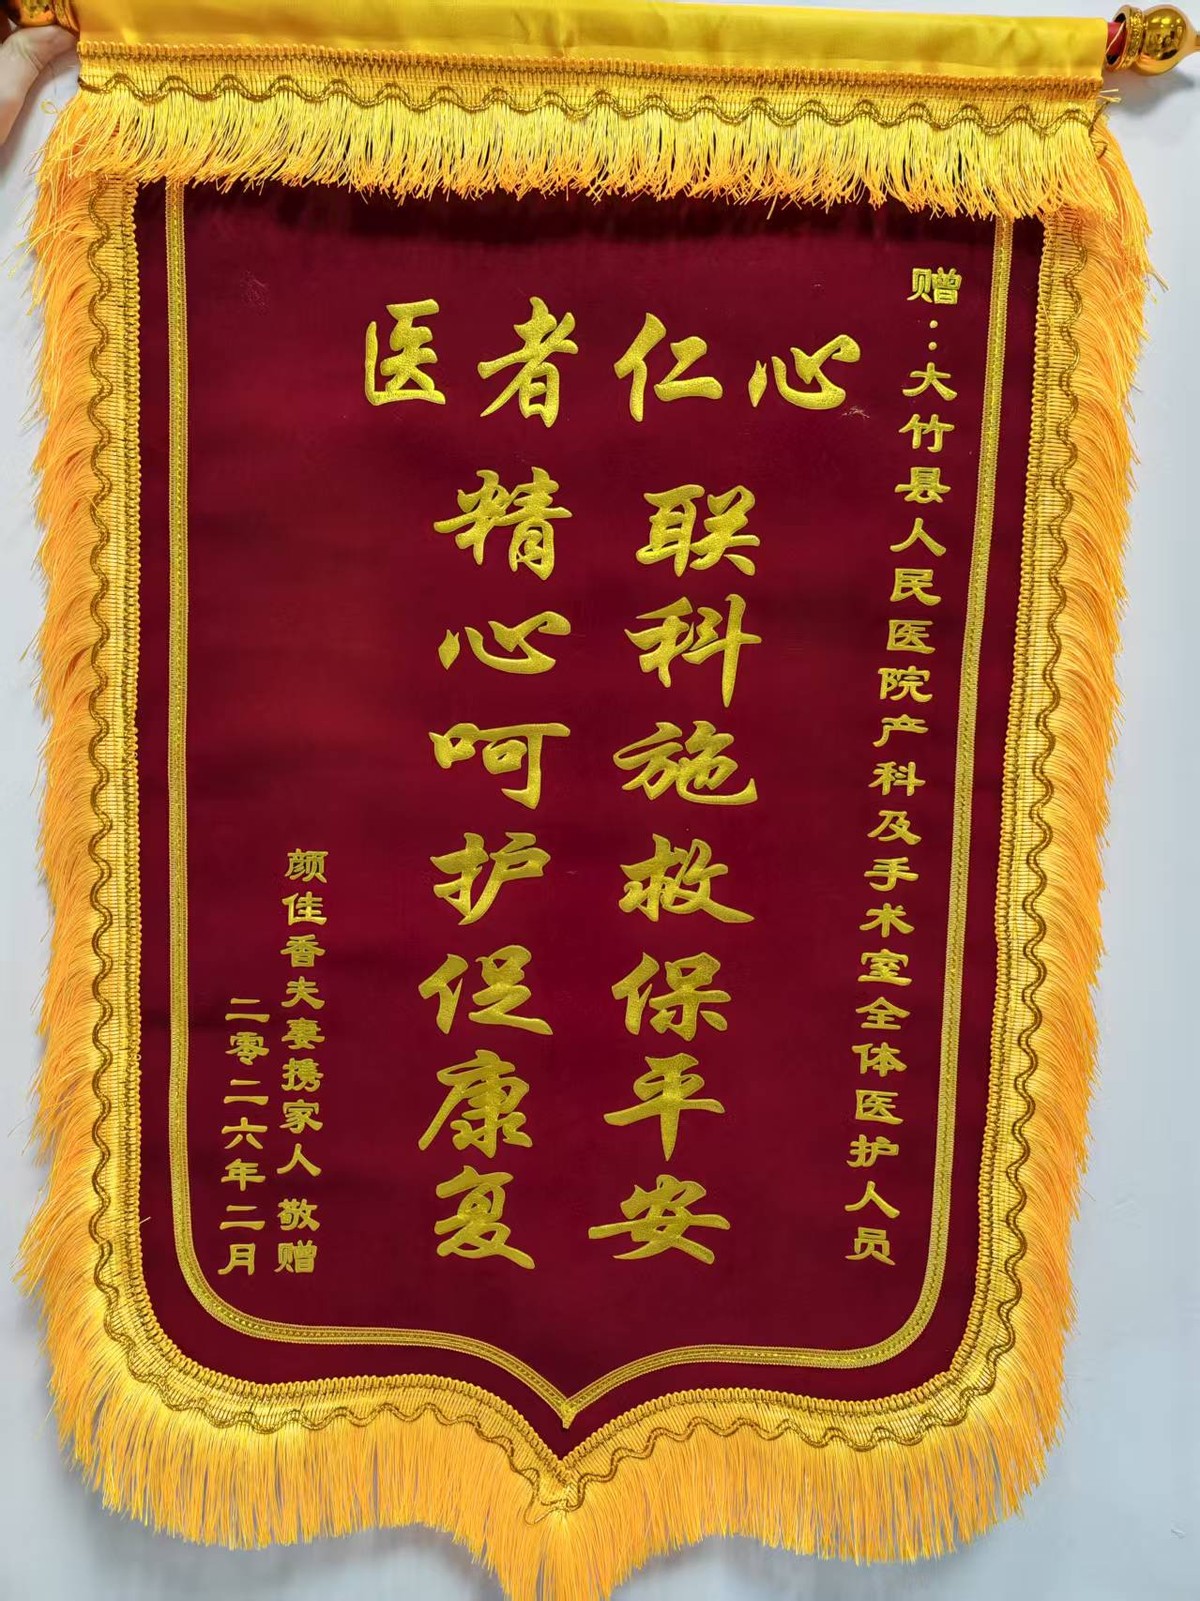 赠：大竹县人民医院产科及手术室全体医护人员
医者仁心
联科施救保平安
精心呵护促康复
颜佳香夫妻携家人 敬赠
二零二六年二月